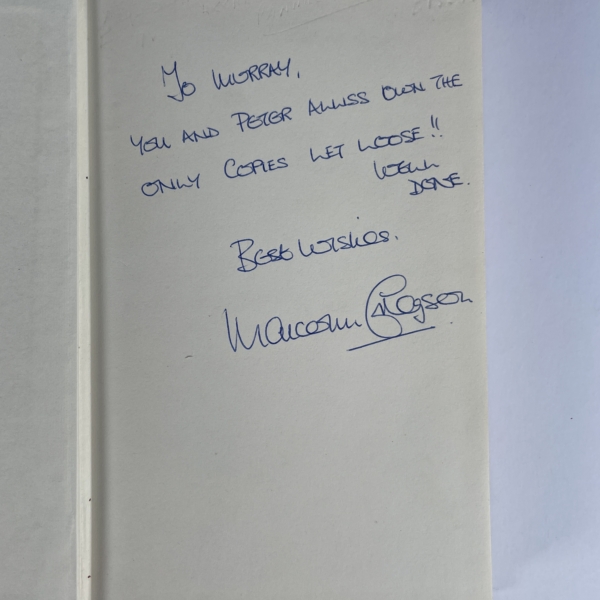 To MURRAY,
YOU AND PETER ALLISS OWN THE
ONLY COPIES LET LOOSE!!
WELL
DONE.
Best Wishes.
Malcolm Gregson